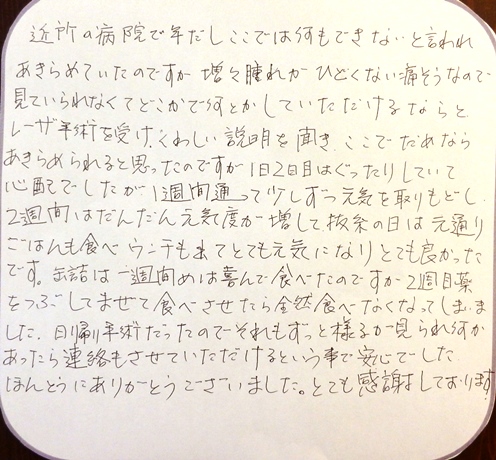 近所の病院で年だしここでは何もできないと言われ
あきらめていたのですが増々腫れがひどくない痛そうなので
見ていられなくてどこかで何とかしていただけるならと
レーザ手術を受け、くわしい説明を聞き、ここでだめなら
あきらめられると思ったのですが1日2日目はぐったりしていて
心配でしたが1週間通って少しずつ元気を取りもどし、
2週間はだんだん元気度が増して、抜糸の日は元通り
ごはんも食べウンチも出てとても元気になりとても良かった
です。缶詰は一週間めは喜んで食べたのですが2週目薬
をつぶしてまぜて食べさせたら全然食べなくなってしまいま
ました、日帰り手術だったのでそれもずっと様子が見られ何か
あったら連絡もさせていただけるという事で安心でした、
ほんとうにありがとうございました。とても感謝しております